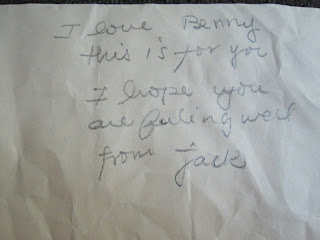 I love Benny
this is for you
I hope you
are feeling well
from Jack